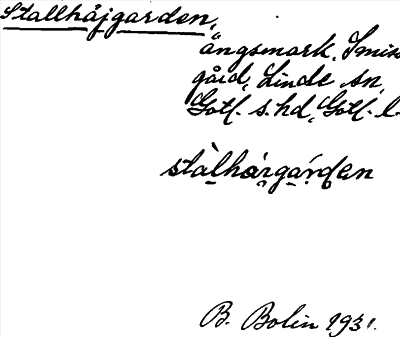 Stallhåjgarden,
ängsmark, Smiss
gård, Linde sn,
Gotl. s. hd, Gotl. l
stàlhárgárden
B. Bolin 1931.